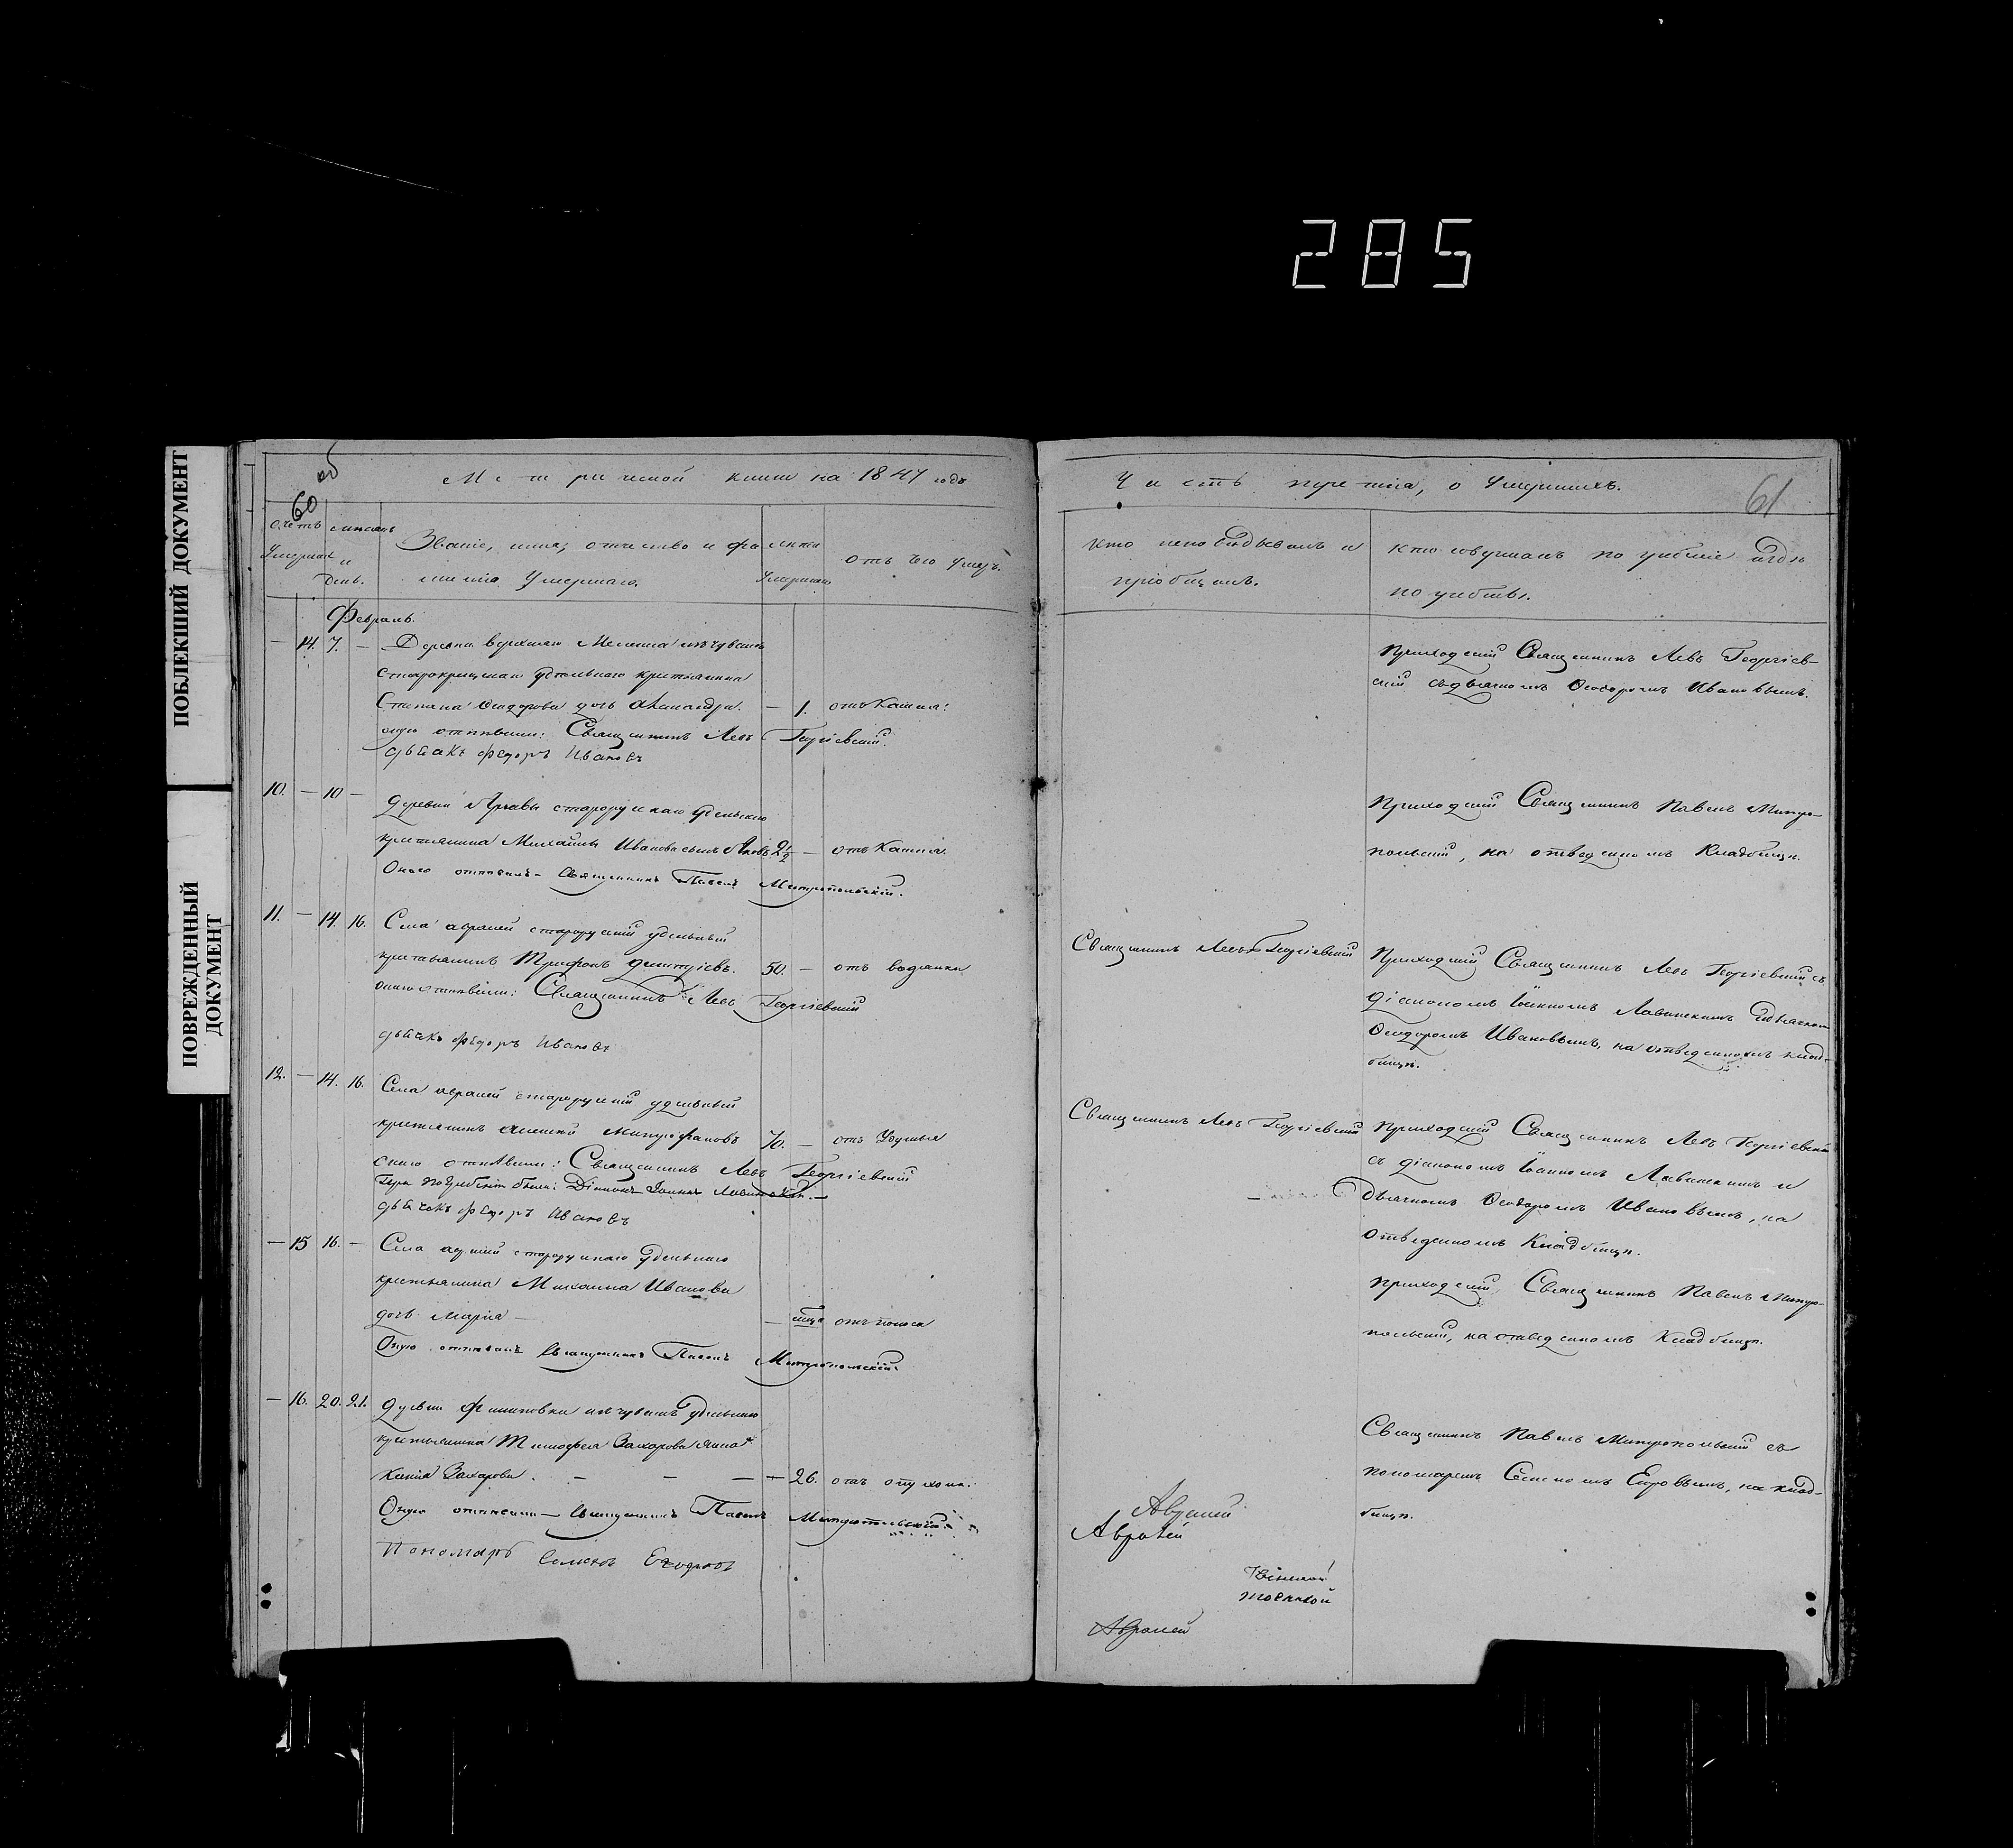 285
ПОБЛЕКШИЙ ДОКУМЕНТ
ПОВРЕЖДЕННЫЙ
ДОКУМЕНТ
60 об
Метрической книги на 1847 годъ
счетъ
Умершихъ
мѣсяцъ
и
день.
Званіе, имя, отчество и фа
милія Умершаго.
лѣта
Умершаго
отъ чего умеръ.
Февраль.
14. 7. Деревни верхняго изъ чувашъ
старокрещенаго удѣльнаго крестьянина
Степана Ѳеодорова дочь Александра. 1. отъ Кашля.
оную отпѣвали: Священникъ Левъ Георгіевскій.
дьячекъ Федоръ Ивановъ
10. — 10 — деревни старорускаго удѣльнаго
крестьянина Михайлы Иванова сынъ Яковъ 2½ — отъ Кашля.
Онаго отпѣвалъ — Священникъ Павелъ Митропольскій.
11. — 14. 16. Села Авралей старорускій удѣльный
крестьянинъ Трифонъ Дмитріевъ. 50. — отъ водянки
онаго отпѣвали: Священникъ Левъ Георгіевскій
дьячекъ Федоръ Ивановъ
12. — 14. 16. Села Авралей старорускій удѣльный
крестьянинъ Митрофановъ 70. — отъ Удушья
онаго отпѣвали: Священникъ Левъ Георгіевскій
При погребеніи были: Діаконъ Іоаннъ
дьячекъ Федоръ Ивановъ
— 15 16. — Села старорускаго Удѣльнаго
крестьянина Михаила Иванова
дочь Марія — отъ поноса
Оную отпѣвалъ Священникъ Павелъ Митропольскій.
— 16. 20. 21. деревни Филиповки изъ чувашъ Удѣльнаго
крестьянина Тимофея Захарова жена
Ксенія Захарова. — — — 26. отъ опухоли.
Оную отпѣвали — Священникъ Павелъ Митропольскій.
Пономарь Семенъ Егоровъ
Часть третія, о Умершихъ.
61
Кто исповѣдывалъ и
пріобщалъ.
кто совершалъ погребеніе и гдѣ
погребены.
Приходскій Священникъ Левъ Георгіев-
скій съ дьячкомъ Ѳеодоромъ Ивановымъ.
Приходскій Священникъ Павелъ Митро-
польскій, на отведенномъ Кладбищѣ.
Священникъ Левъ Георгіевскій
Приходскій Священникъ Левъ Георгіевскій съ
діакономъ Іоанномъ Лавинскимъ и дьячкомъ
Ѳеодоромъ Ивановымъ, на отведенномъ клад-
бищѣ.
Священникъ Левъ Георгіевскій
Приходскій Священникъ Левъ Георгіевскій
съ діакономъ Іоанномъ Лавинскимъ и
дьячкомъ Ѳеодоромъ Ивановымъ, на
отведенномъ Кладбищѣ.
приходскій Священникъ Павелъ Митро-
польскій, на отведенномъ Кладбищѣ.
Священникъ Павелъ Митропольскій съ
пономаремъ Семеномъ Егоровымъ, на клад-
бищѣ.
Авралей
Авралей